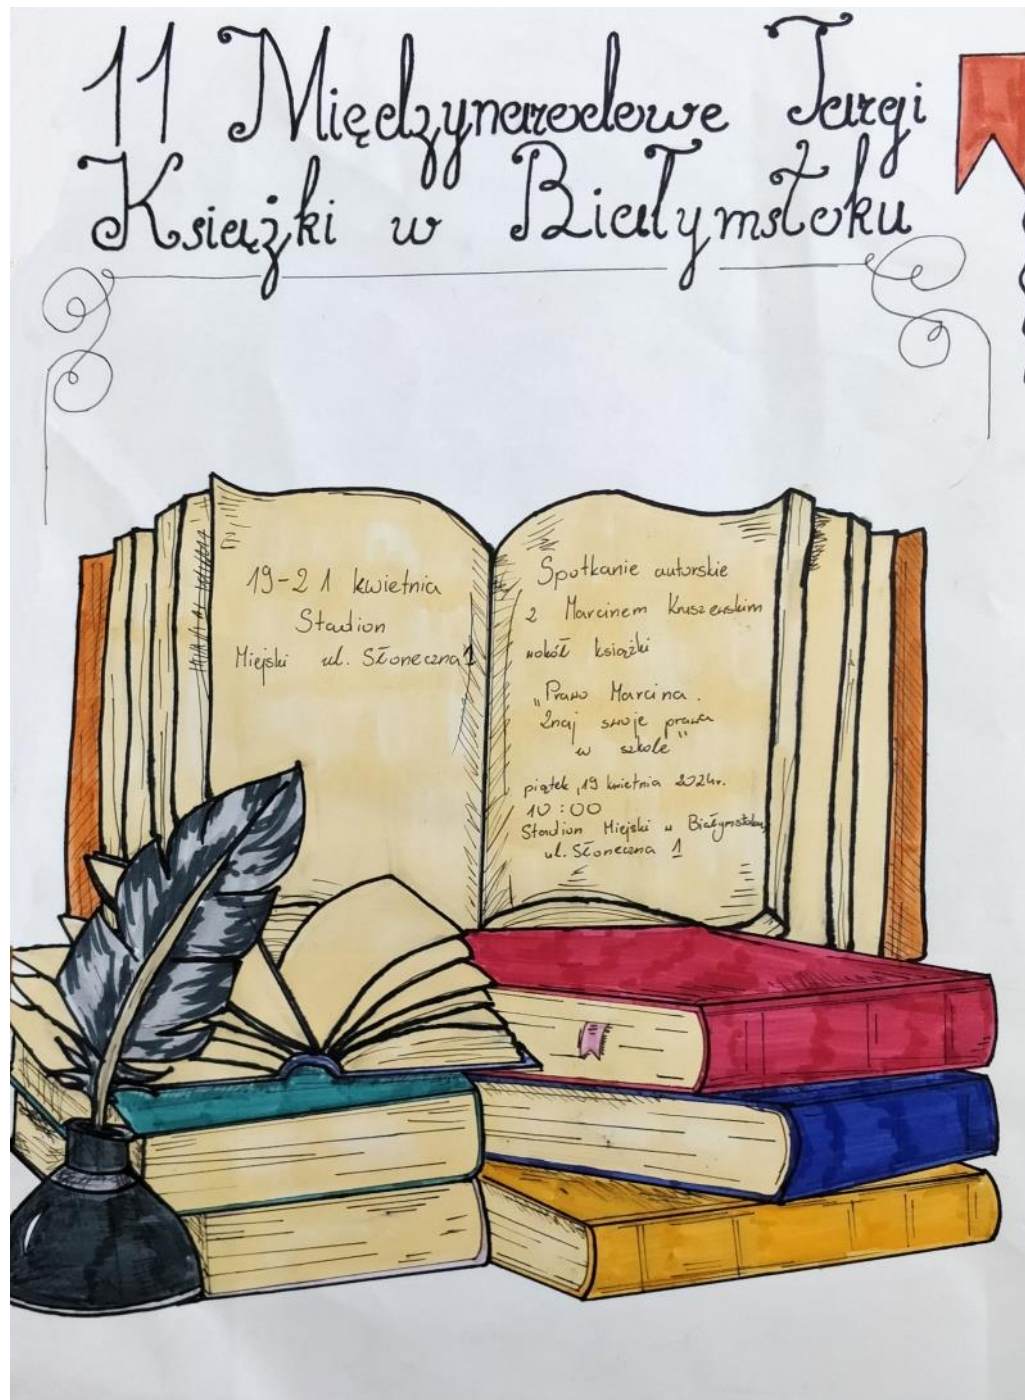 11 Międzynarodowe Targi
Książki w Białymstoku
19-21 kwietnia
Stadion
Miejski ul. Słoneczna 1
Spotkanie autorskie
z Marcinem Kruszewskim
wokół książki
„Prawo Marcina.
Znaj swoje prawa
w szkole"
piątek, 19 kwietnia 2024r.
10:00
Stadion Miejski w Białymstoku,
ul. Słoneczna 1